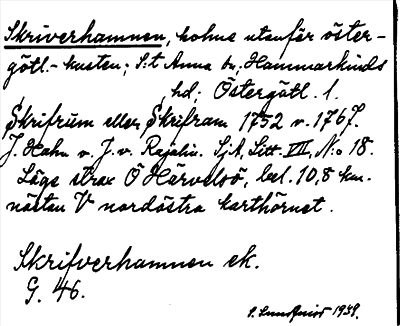 Skriverhamnen, holme utanför öster-
götl.-kusten; S:t Anna sn, Hammarkinds
hd; Östergötl. l.
Skrifrum eller Skifram 1752 o. 1767.
J. Hahn o. J. v. Rajalin. SjA, Litt. VII, N:o 18.
Läge strax Ö Härvelsö, bel. 10,8 km.
nästan V nordöstra karthörnet.
Skrifverhamnen ek.
G. 46.
S. Lundqvist 1939.